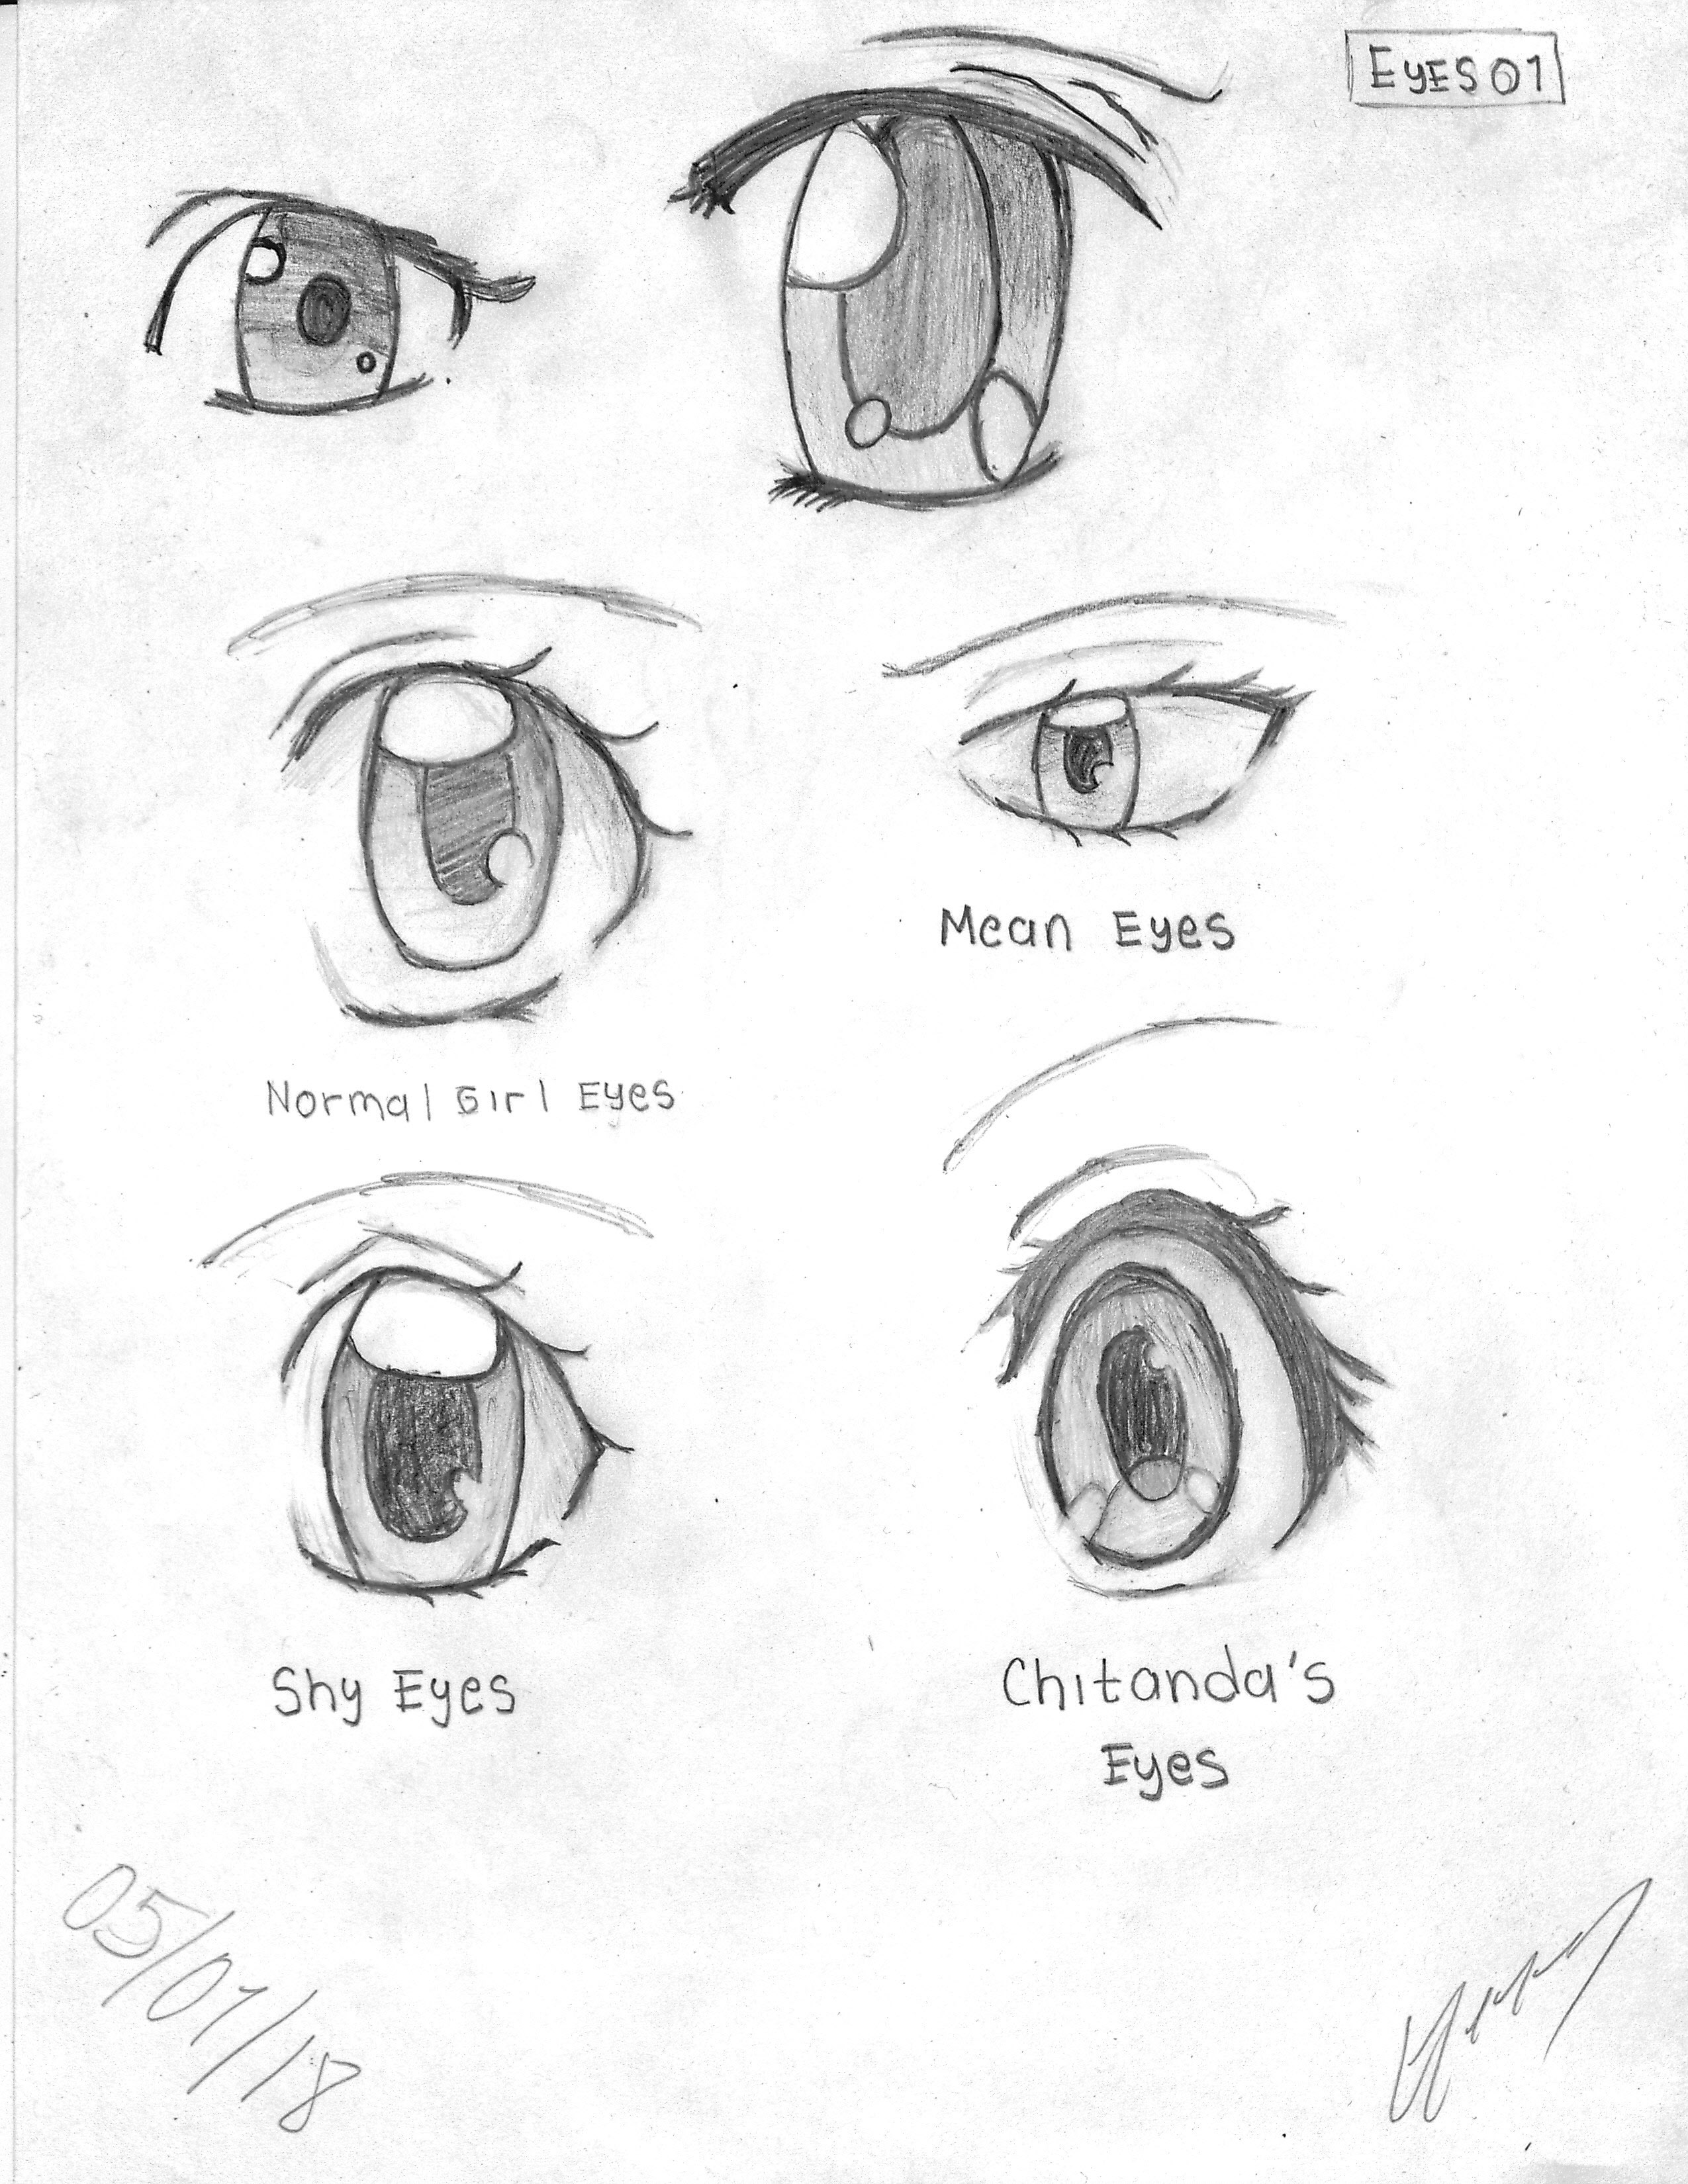 EyES 01
Mean Eyes
Normal Girl Eyes
Shy Eyes
Chitanda's
Eyes
05/01/18